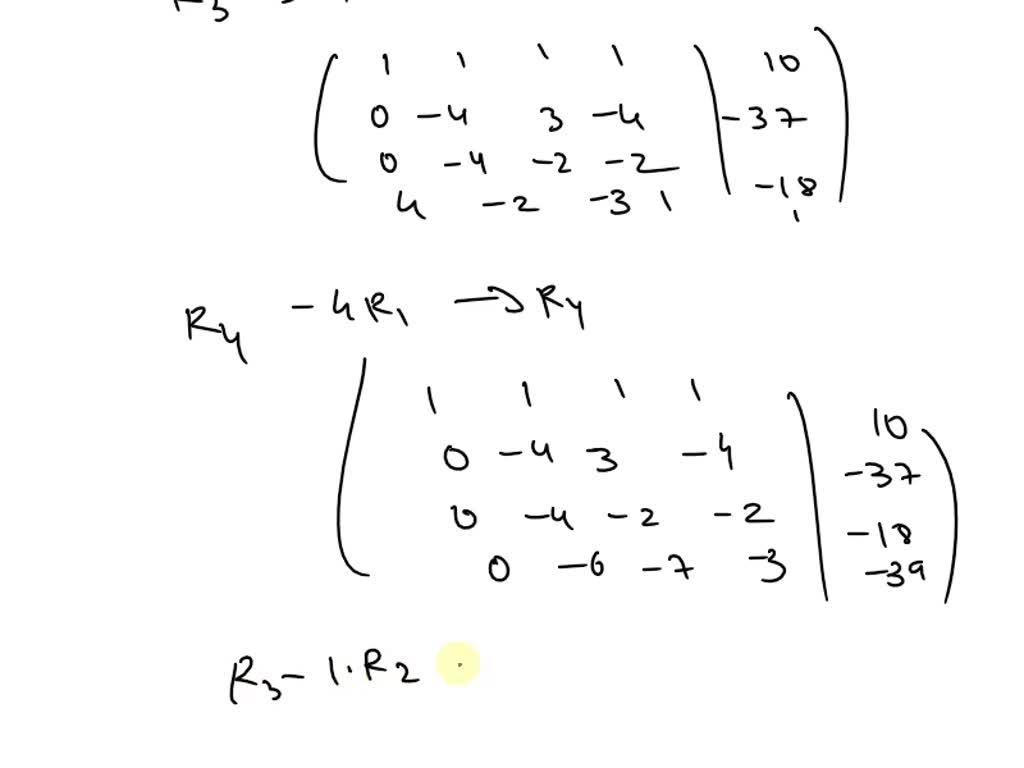 1 1 1 1 10
0 -4 3 -4 -37
0 -4 -2 -2 -18
4 -2 -3 1 1
R4 - 4R1 → R4
1 1 1 1 10
0 -4 3 -4 -37
0 -4 -2 -2 -18
0 -6 -7 -3 -39
R3 - 1.R2